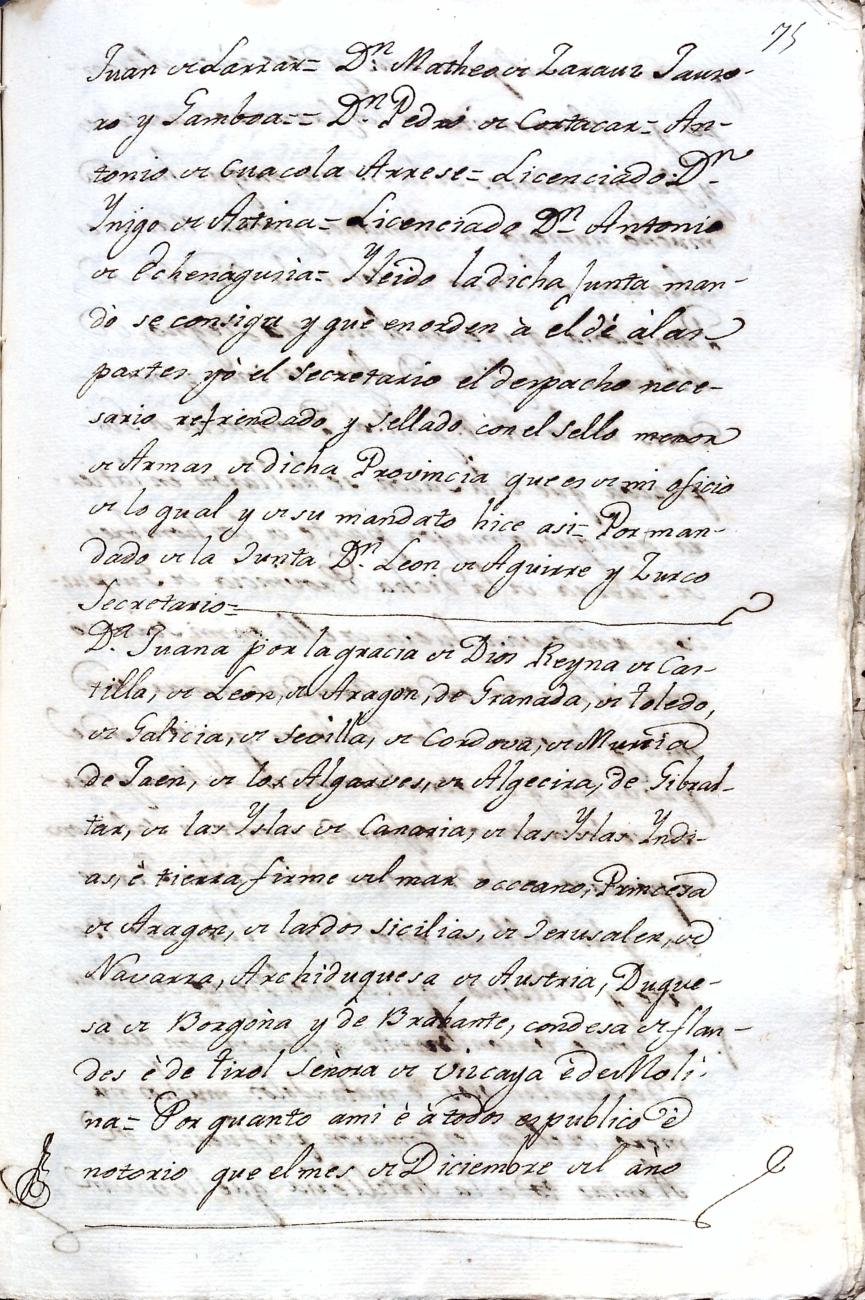 75
Juan de Larrar= Dn. Matheo de Zarauz Jauro-
ro y Gamboa== Dn. Pedro de Cortacar= An-
tonio de Guacola Arrese= Licenciado Dn.
Ynigo de Astina= Licenciado Dn. Antonio
de Echenagusia= Yleido ladicha Junta man-
dò se consiga y que enorden à el dè àlas
partes yò el secretario el despacho nece-
sario refrendado y sellado conel sello menor
de Armas de dicha Provincia que es de mi oficio
de lo qual y de su mandato hice asi= Por man-
dado de la Junta Dn. Leon de Aguirre y Zurco
Secretario=
Da. Juana por lagracia de Dios Reyna de Cas-
tilla, de Leon, de Aragon, de Granada, de toledo,
de Galicia, de Sevilla, de Cordova, de Murcia
de Jaen, de los Algarves, de Algecira, de Gibral-
tar, de las Yslas de Canaria, de las Yslas Yndi-
as, è tierra firme del mar occeano, Princesa
de Aragon, de lasdos sicilias, de Jerusalen, de
Navarra, Archiduquesa de Austria, Duque-
sa de Borgoña y de Brabante, condesa de flan-
des è de tirol Señora de Vizcaya è de Moli-
na= Por quanto ami è à todos es publico è
notorio que elmes de Diciembre del año